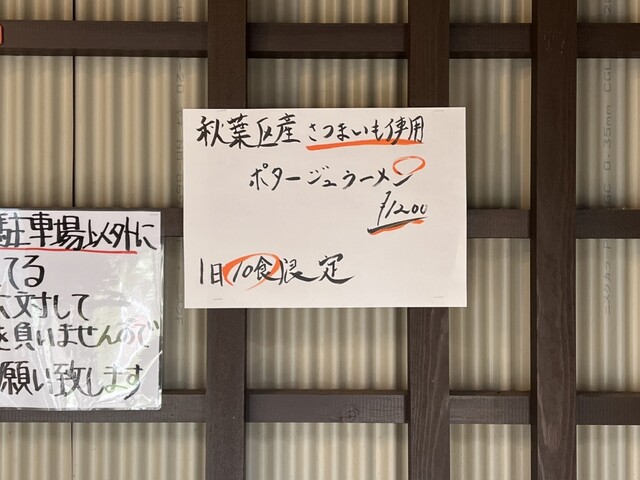 秋葉区産さつまいも使用
ポタージュラーメン
¥1200
1日10食限定
駐車場以外に
てる
対して
を負いませんので
願い致します